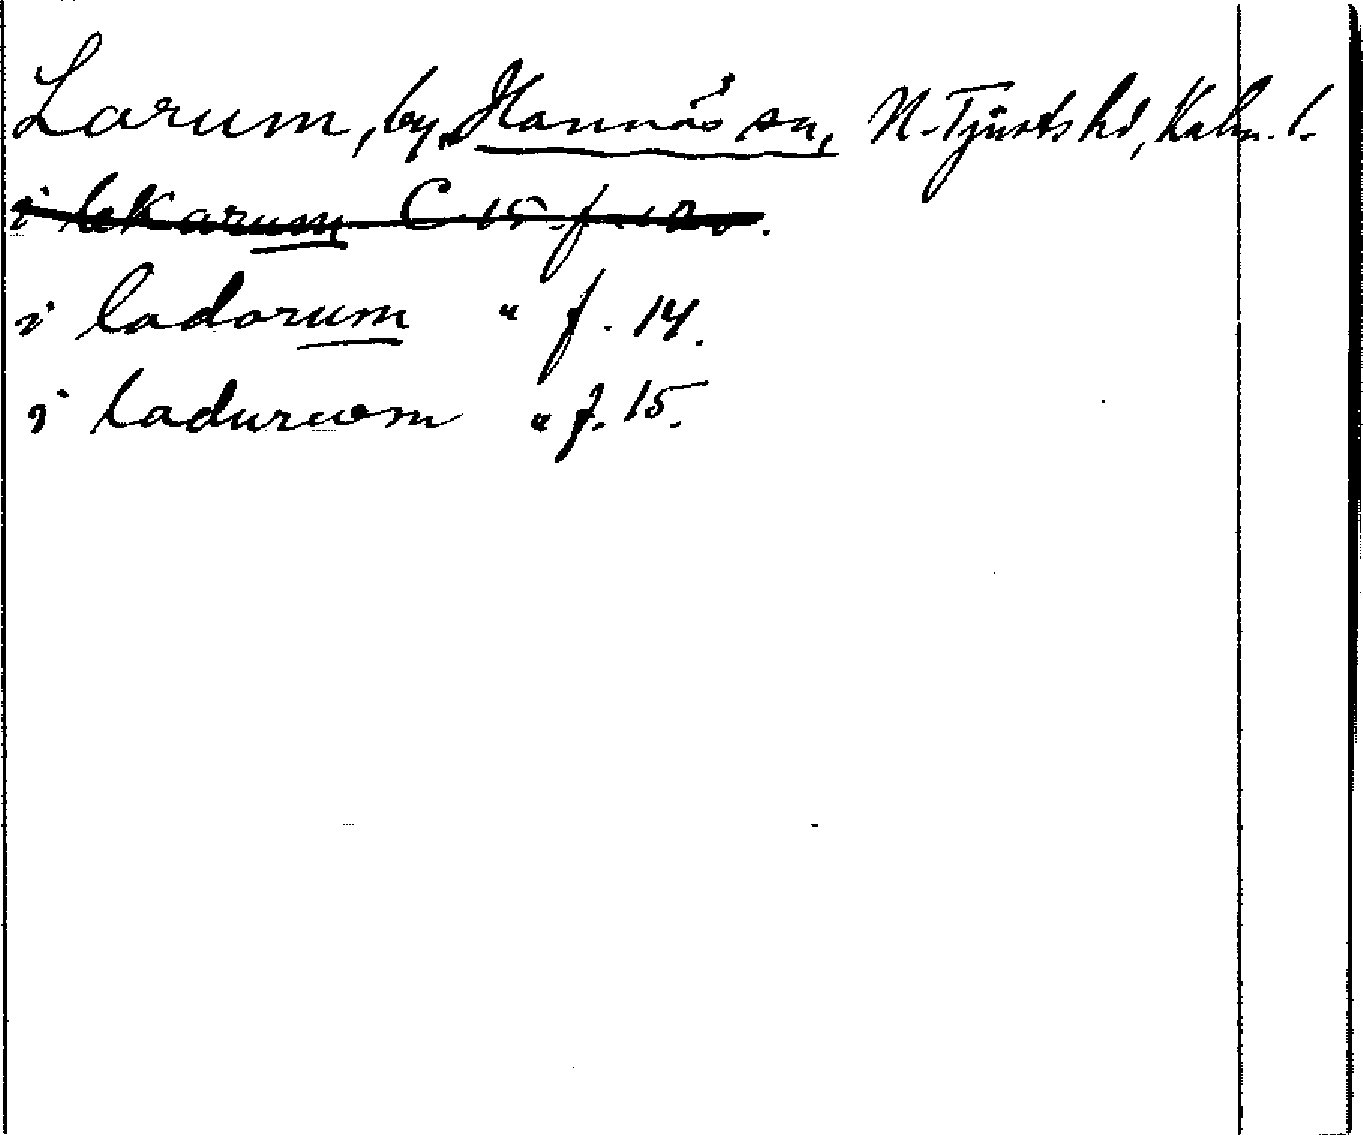 Larum, by, Hannäs sn, N. Tjusts hd, Kalm. l.
i lekarum C 15 f. 12 v.
i ladorum " f. 14.
i ladurwm " f. 15.